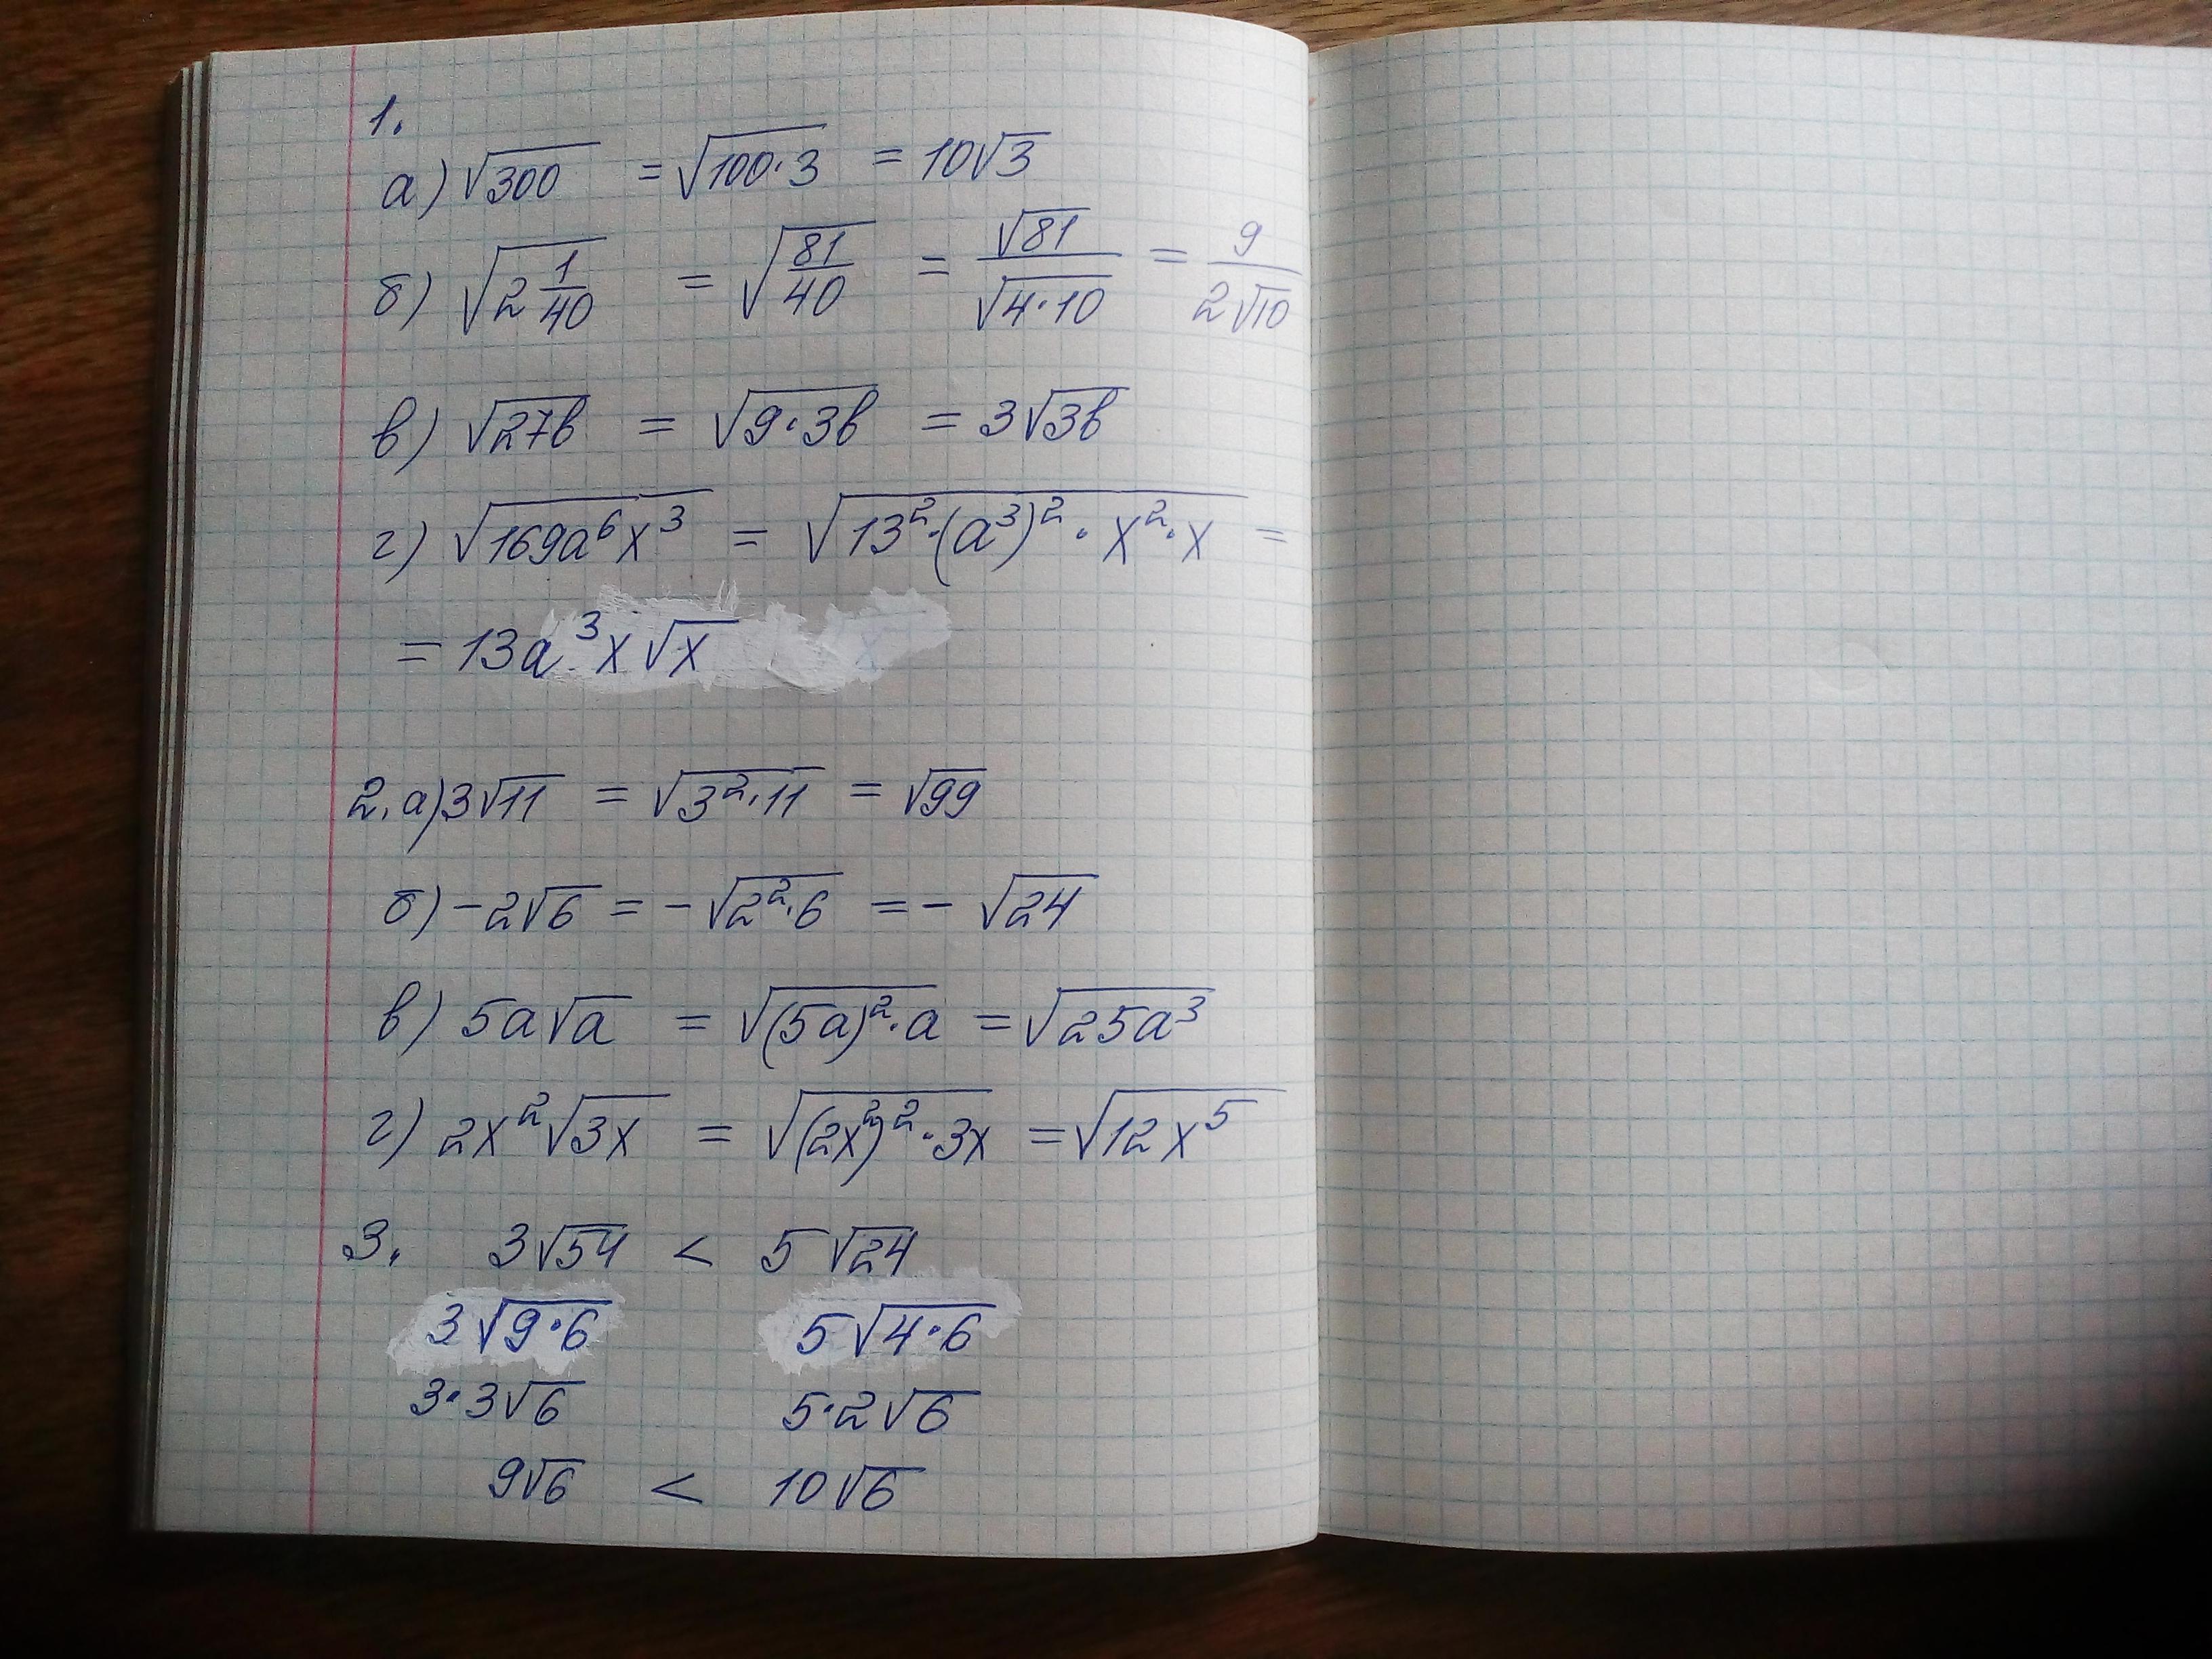 1.
а) √300 = √100·3 = 10√3
б) √2 1/40 = √81/40 = √81/√4·10 = 9/2√10
в) √27b = √9·3b = 3√3b
г) √169a⁶x³ = √13²·(a³)²·x²·x =
= 13a³x√x
2. а) 3√11 = √3²·11 = √99
б) -2√6 = -√2²·6 = -√24
в) 5a√a = √(5a)²·a = √25a³
г) 2x²√3x = √(2x²)²·3x = √12x⁵
3. 3√54 < 5√24
3√9·6 5√4·6
3·3√6 5·2√6
9√6 < 10√6